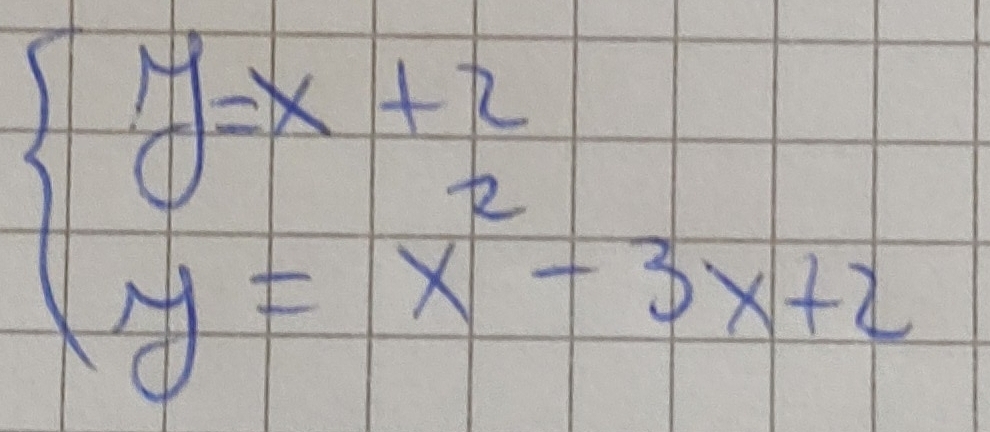 y=x+2
y = x² - 3x+2